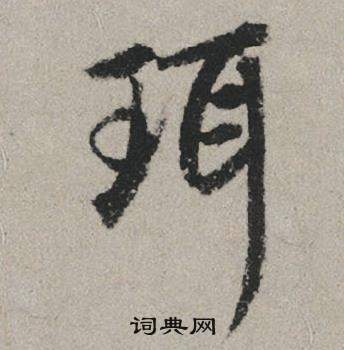 珥
词典网